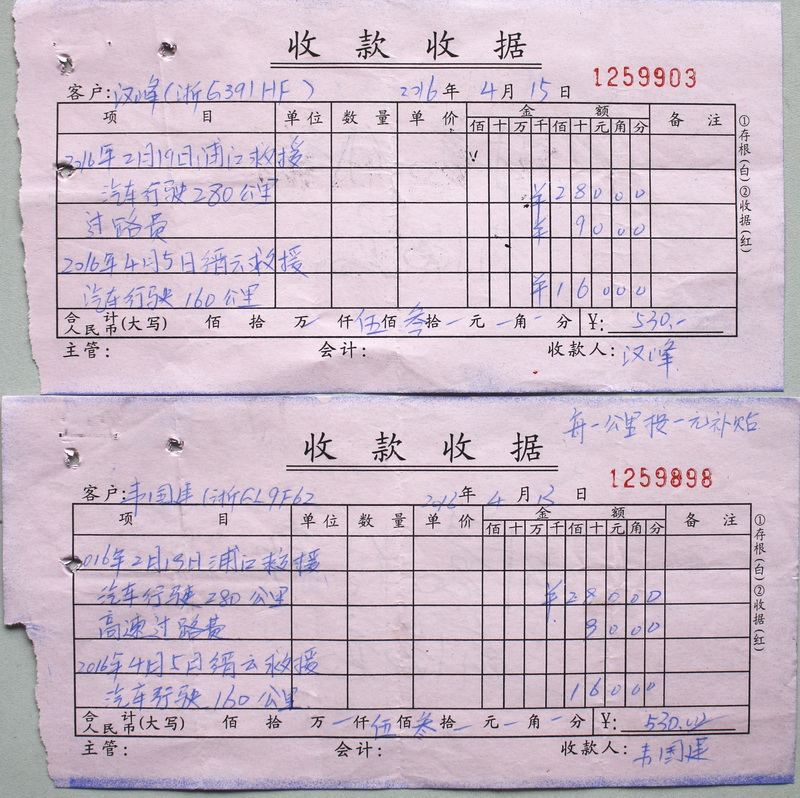 收款收据
客户:汉峰(浙G391HF) 2016年4月15日 1259903
项目 单位 数量 单价 金额 备注
佰十万千佰十元角分
2016年2月19日浦江救援
汽车行驶280公里 ¥28000
过路费 ¥9000
2016年4月5日缙云救援
汽车行驶160公里 ¥16000
合计人民币(大写) 佰 拾 万 仟伍佰叁拾 元 角 分 ¥: 530.-
主管: 会计: 收款人:汉峰
①存根(白)②收据(红)
每一公里按一元补贴
收款收据
客户:韦国建(浙GL9F62 年4月 日 1259898
项目 单位 数量 单价 金额 备注
佰十万千佰十元角分
2016年2月19日浦江救援
汽车行驶280公里 ¥28000
高速过路费 9000
2016年4月5日缙云救援
汽车行驶160公里 16000
合计人民币(大写) 佰 拾 万 仟伍佰叁拾 元 角 分 ¥: 530.00
主管: 会计: 收款人:韦国建
①存根(白)②收据(红)